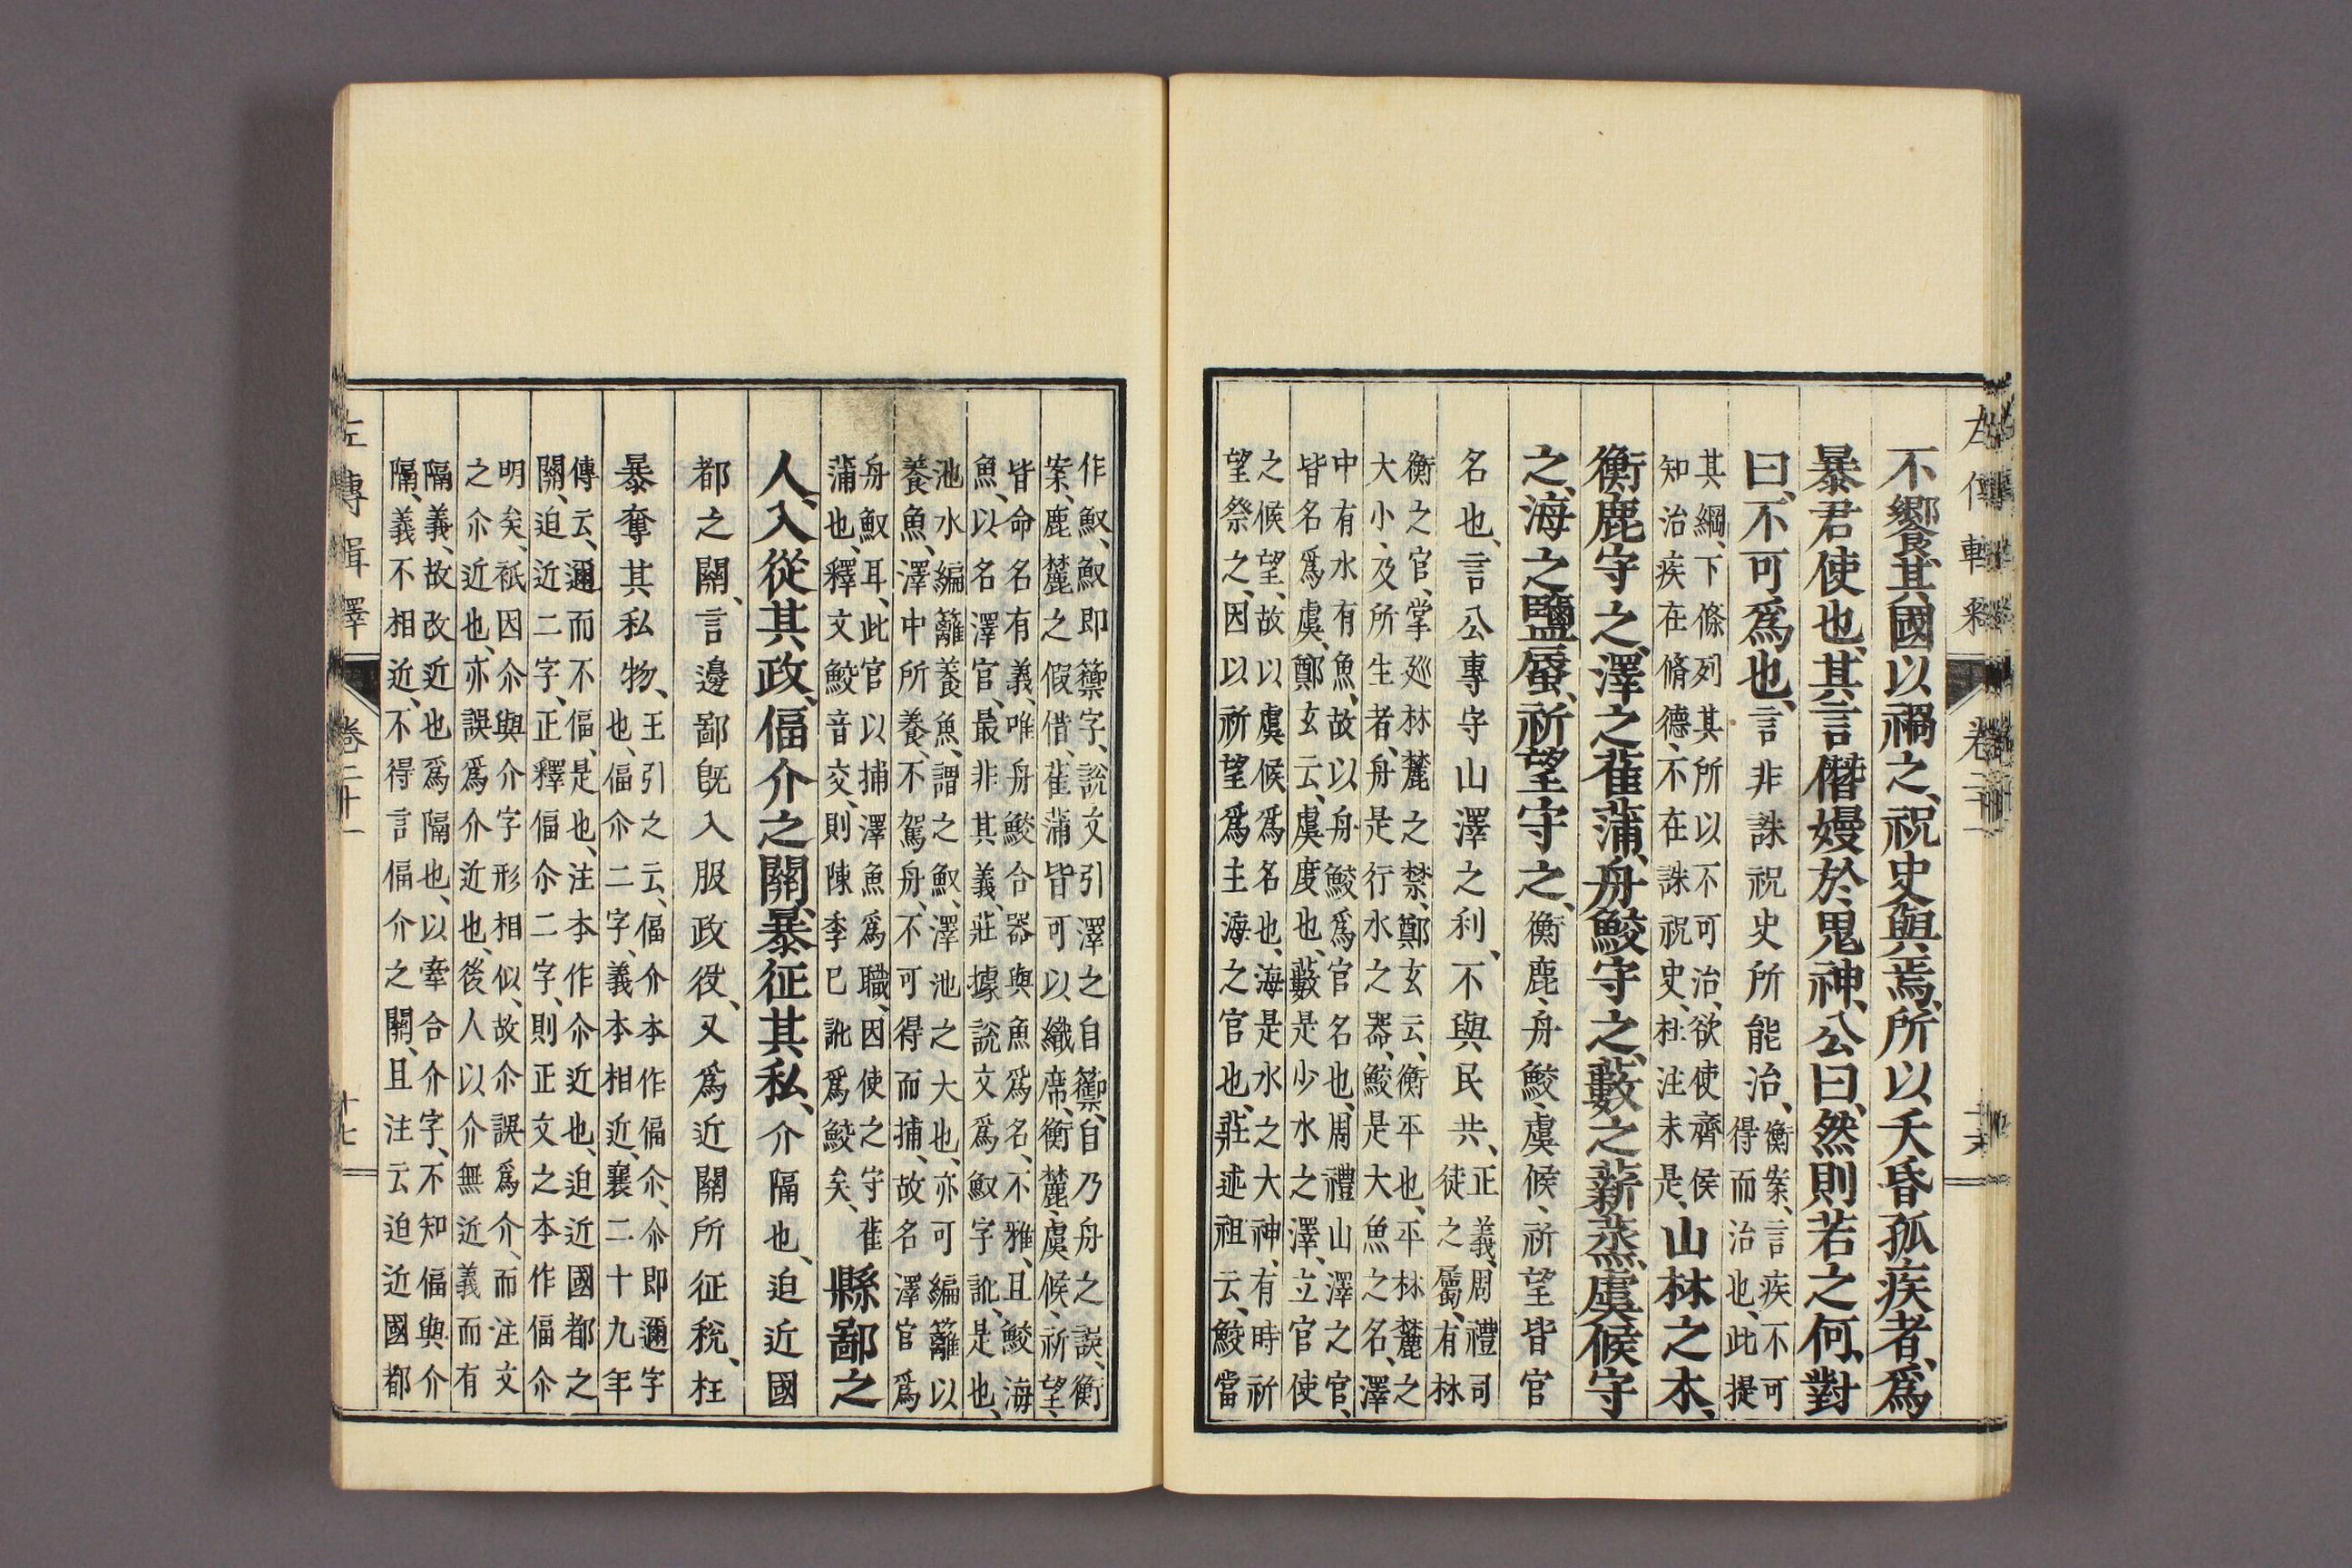 不饗其國以禍之、祝史與焉、所以夭昏孤疾者、爲
暴君使也、其言僭嫚於鬼神、公曰、然則若之何、對
曰、不可爲也、言非誅祝史所能治、衡案、言疾不可
得而治也、此提
其綱、下條列其所以不可治、欲使齊侯
知治疾在脩德、不在誅祝史、杜注未是、山林之木、
衡鹿守之、澤之萑蒲、舟鮫守之、藪之薪蒸、虞候守
之、海之鹽蜃、祈望守之、衡鹿、舟鮫、虞候、祈望皆官
名也、言公專守山澤之利、不與民共、正義、周禮司
徒之屬、有林
衡之官、掌巡林麓之禁、鄭玄云、衡平也、平林麓之
大小、及所生者、舟是行水之器、鮫是大魚之名、澤
中有水有魚、故以舟鮫爲官名也、周禮山澤之官、
皆名爲虞、鄭玄云、虞度也、藪是少水之澤、立官使
之候望、故以虞候爲名也、海是水之大神、有時祈
望祭之、因以祈望爲主海之官也、莊述祖云、鮫當
作䱷、䱷即籞字、說文引澤之自籞、自乃舟之誤、衡
案、鹿麓之假借、萑蒲皆可以織席、衡麓、虞候、祈望、
皆命名有義、唯舟鮫合器與魚爲名、不雅、且鮫海
魚、以名澤官、最非其義、莊據說文爲䱷字訛、是也、
池水編籬養魚、謂之䱷、澤池之大也、亦可編籬以
養魚、澤中所養、不駕舟、不可得而捕、故名澤官爲
舟䱷耳、此官以捕澤魚爲職、因使之守萑
蒲也、釋文鮫音交、則陳季已訛爲鮫矣、縣鄙之
人、入從其政、偪介之關、暴征其私、介隔也、迫近國
都之關、言邊鄙旣入服政役、又爲近關所征稅、枉
暴奪其私物、王引之云、偪介本作偪尒、尒即邇字
也、偪尒二字、義本相近、襄二十九年
傳云、邇而不偪、是也、注本作尒近也、迫近國都之
關、迫近二字、正釋偪尒二字、則正文之本作偪尒
明矣、衹因尒與介字形相似、故尒誤爲介、而注文
之尒近也、亦誤爲介近也、後人以介無近義而有
隔義、故改近也爲隔也、以牽合介字、不知偪與介
隔、義不相近、不得言偪介之關、且注云迫近國都
左傳輯釋
卷二十一
十七